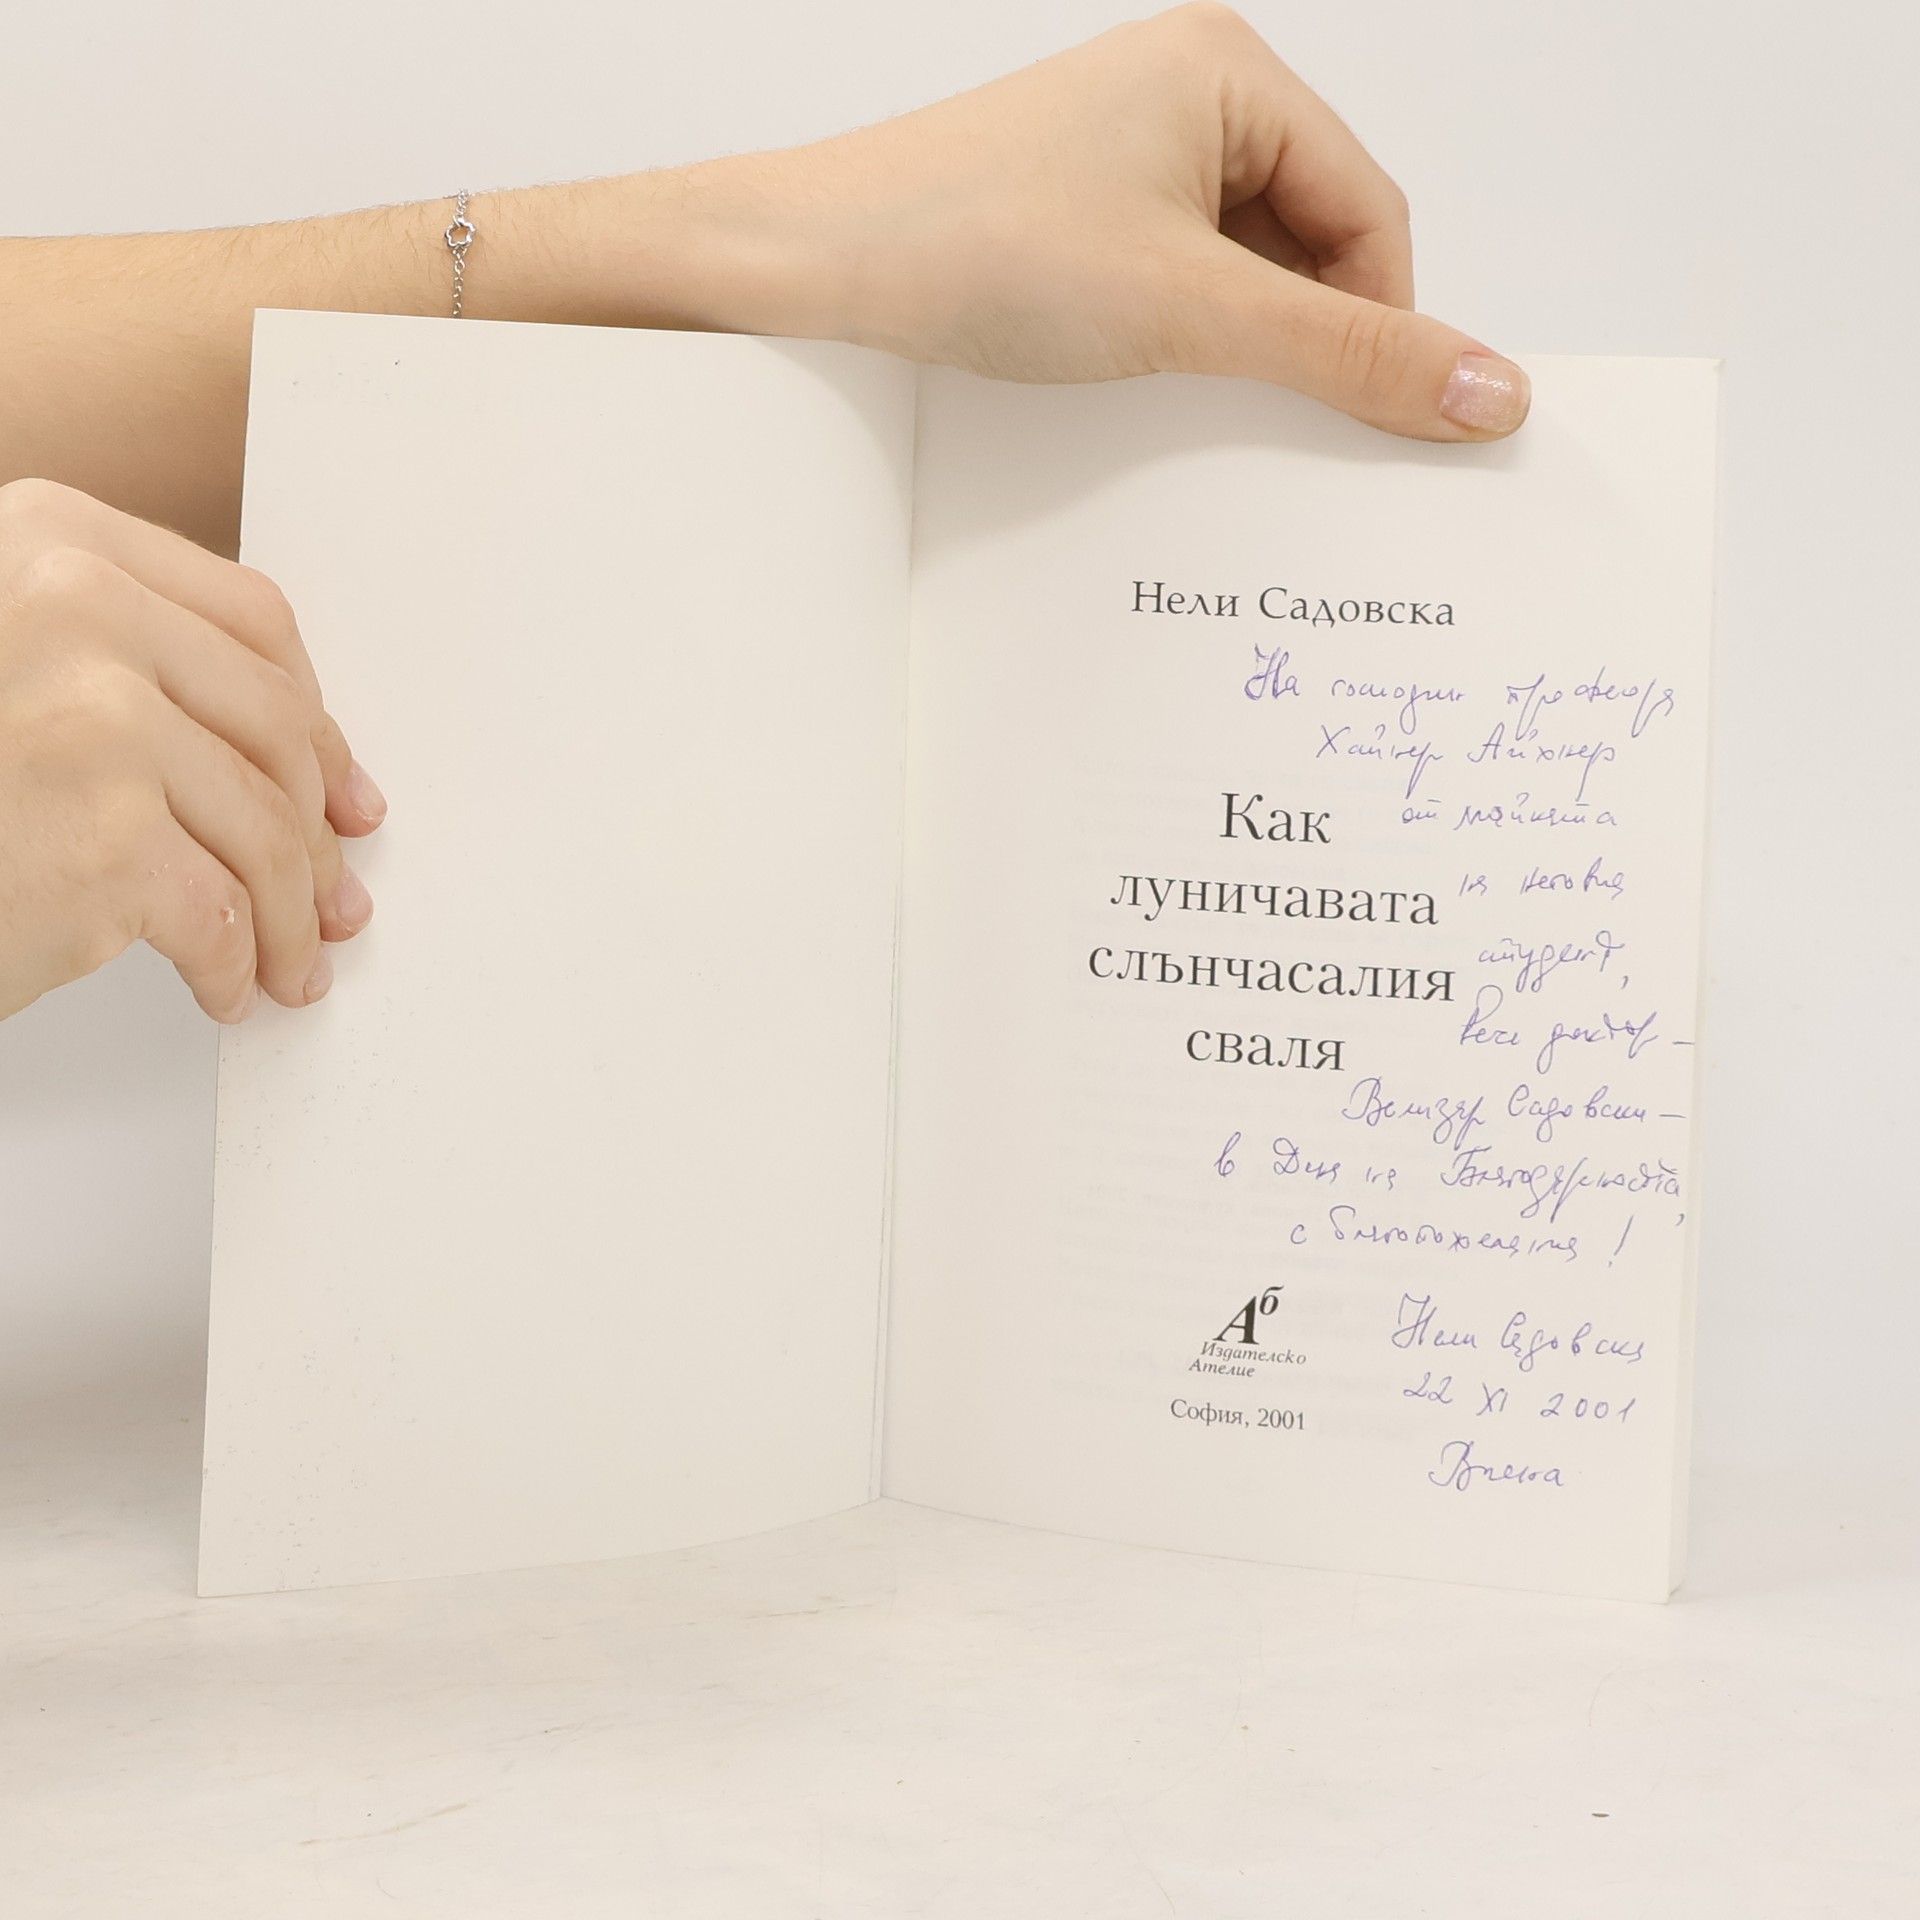 Нели Садовска
На господин професора
Хайнер Айхнер
Как
от майката
луничавата
на неговия
слънчасалия
студент,
сваля
вече доктор –
Велизар Садовски –
в Деня на Благодарността,
с благопожелания!
Аб
Издателско
Ателие
София, 2001
Нели Садовска
22 XI 2001
Виена